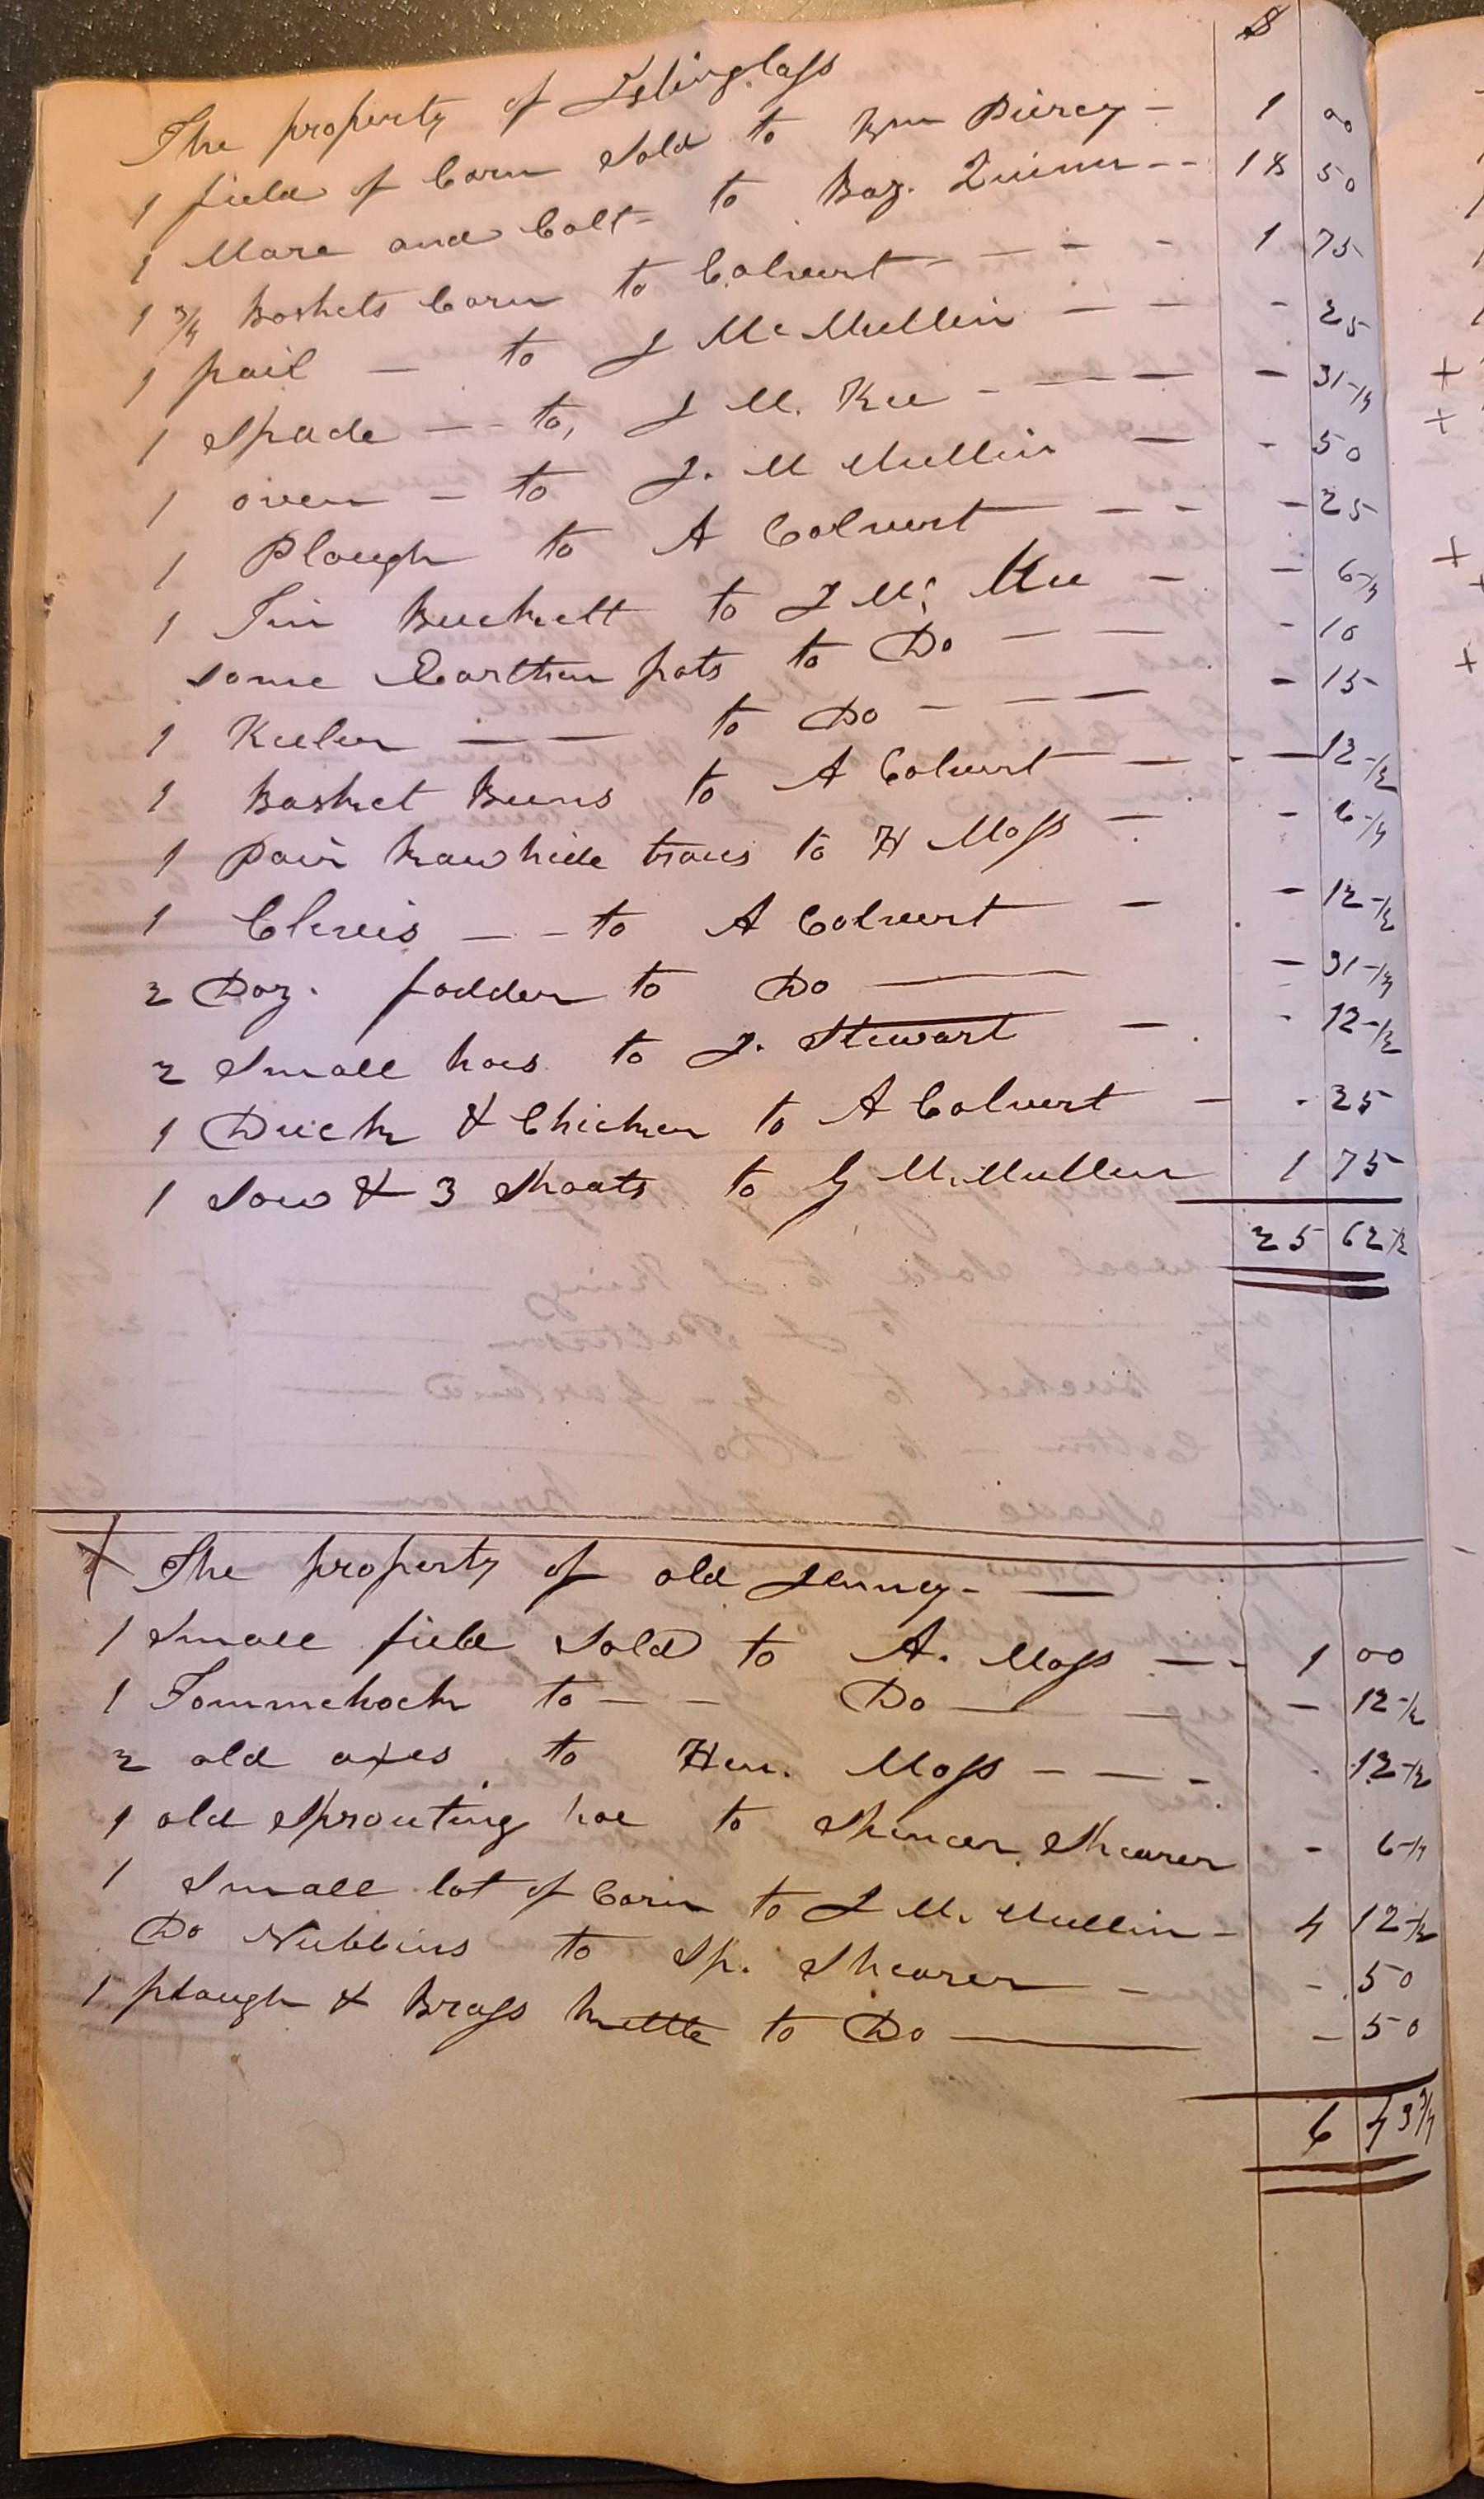 $
The property of Islinglass
1 field of Corn Sold to Wm Piercy - 1 00
1 Mare and Colt - to Baz. Quinn - - 18 50
1 3/4 Baskets Corn to Calvert - - - - 1 75
1 pail - to J McMullin - - - 25
1 Spade - - to, J M. Kee - - - - 31-1/4
1 oven - to J. M Mullin - - 50
1 Plough to A Calvert - - - 25
1 Tin Buckett to J Mc Kee - - 6-1/4
some Earthen pots to Do - - - 10
1 Keeler - - to Do - - - - 15
1 Basket Beans to A Calvert - - - 12-1/2
1 pair Rawhide traces to H Moss - - 6-1/4
1 Clevis - - to A Calvert - - 12-1/2
2 Doz. fodder to Do - - 31-1/4
2 Small hoes to J. Stewart - - 12-1/2
1 Duck & Chicken to A Calvert - - 25
1 Sow & 3 Shoats to G McMullen 1 75
25 62 1/2
+ The property of old Jenney - -
1 Small field Sold to A. Moss - - 1 00
1 Tommehock to - - Do - - - 12-1/2
2 old axes to Hen. Moss - - - - 12-1/2
1 old Sprouting hoe to Spencer Shearer - 6-1/4
1 Small lot of Corn to J Mc Mullin - 4 12-1/2
Do Nubbins to Sp. Shearer - - 50
1 plough & Brass kettle to Do - - 50
6 43 3/4